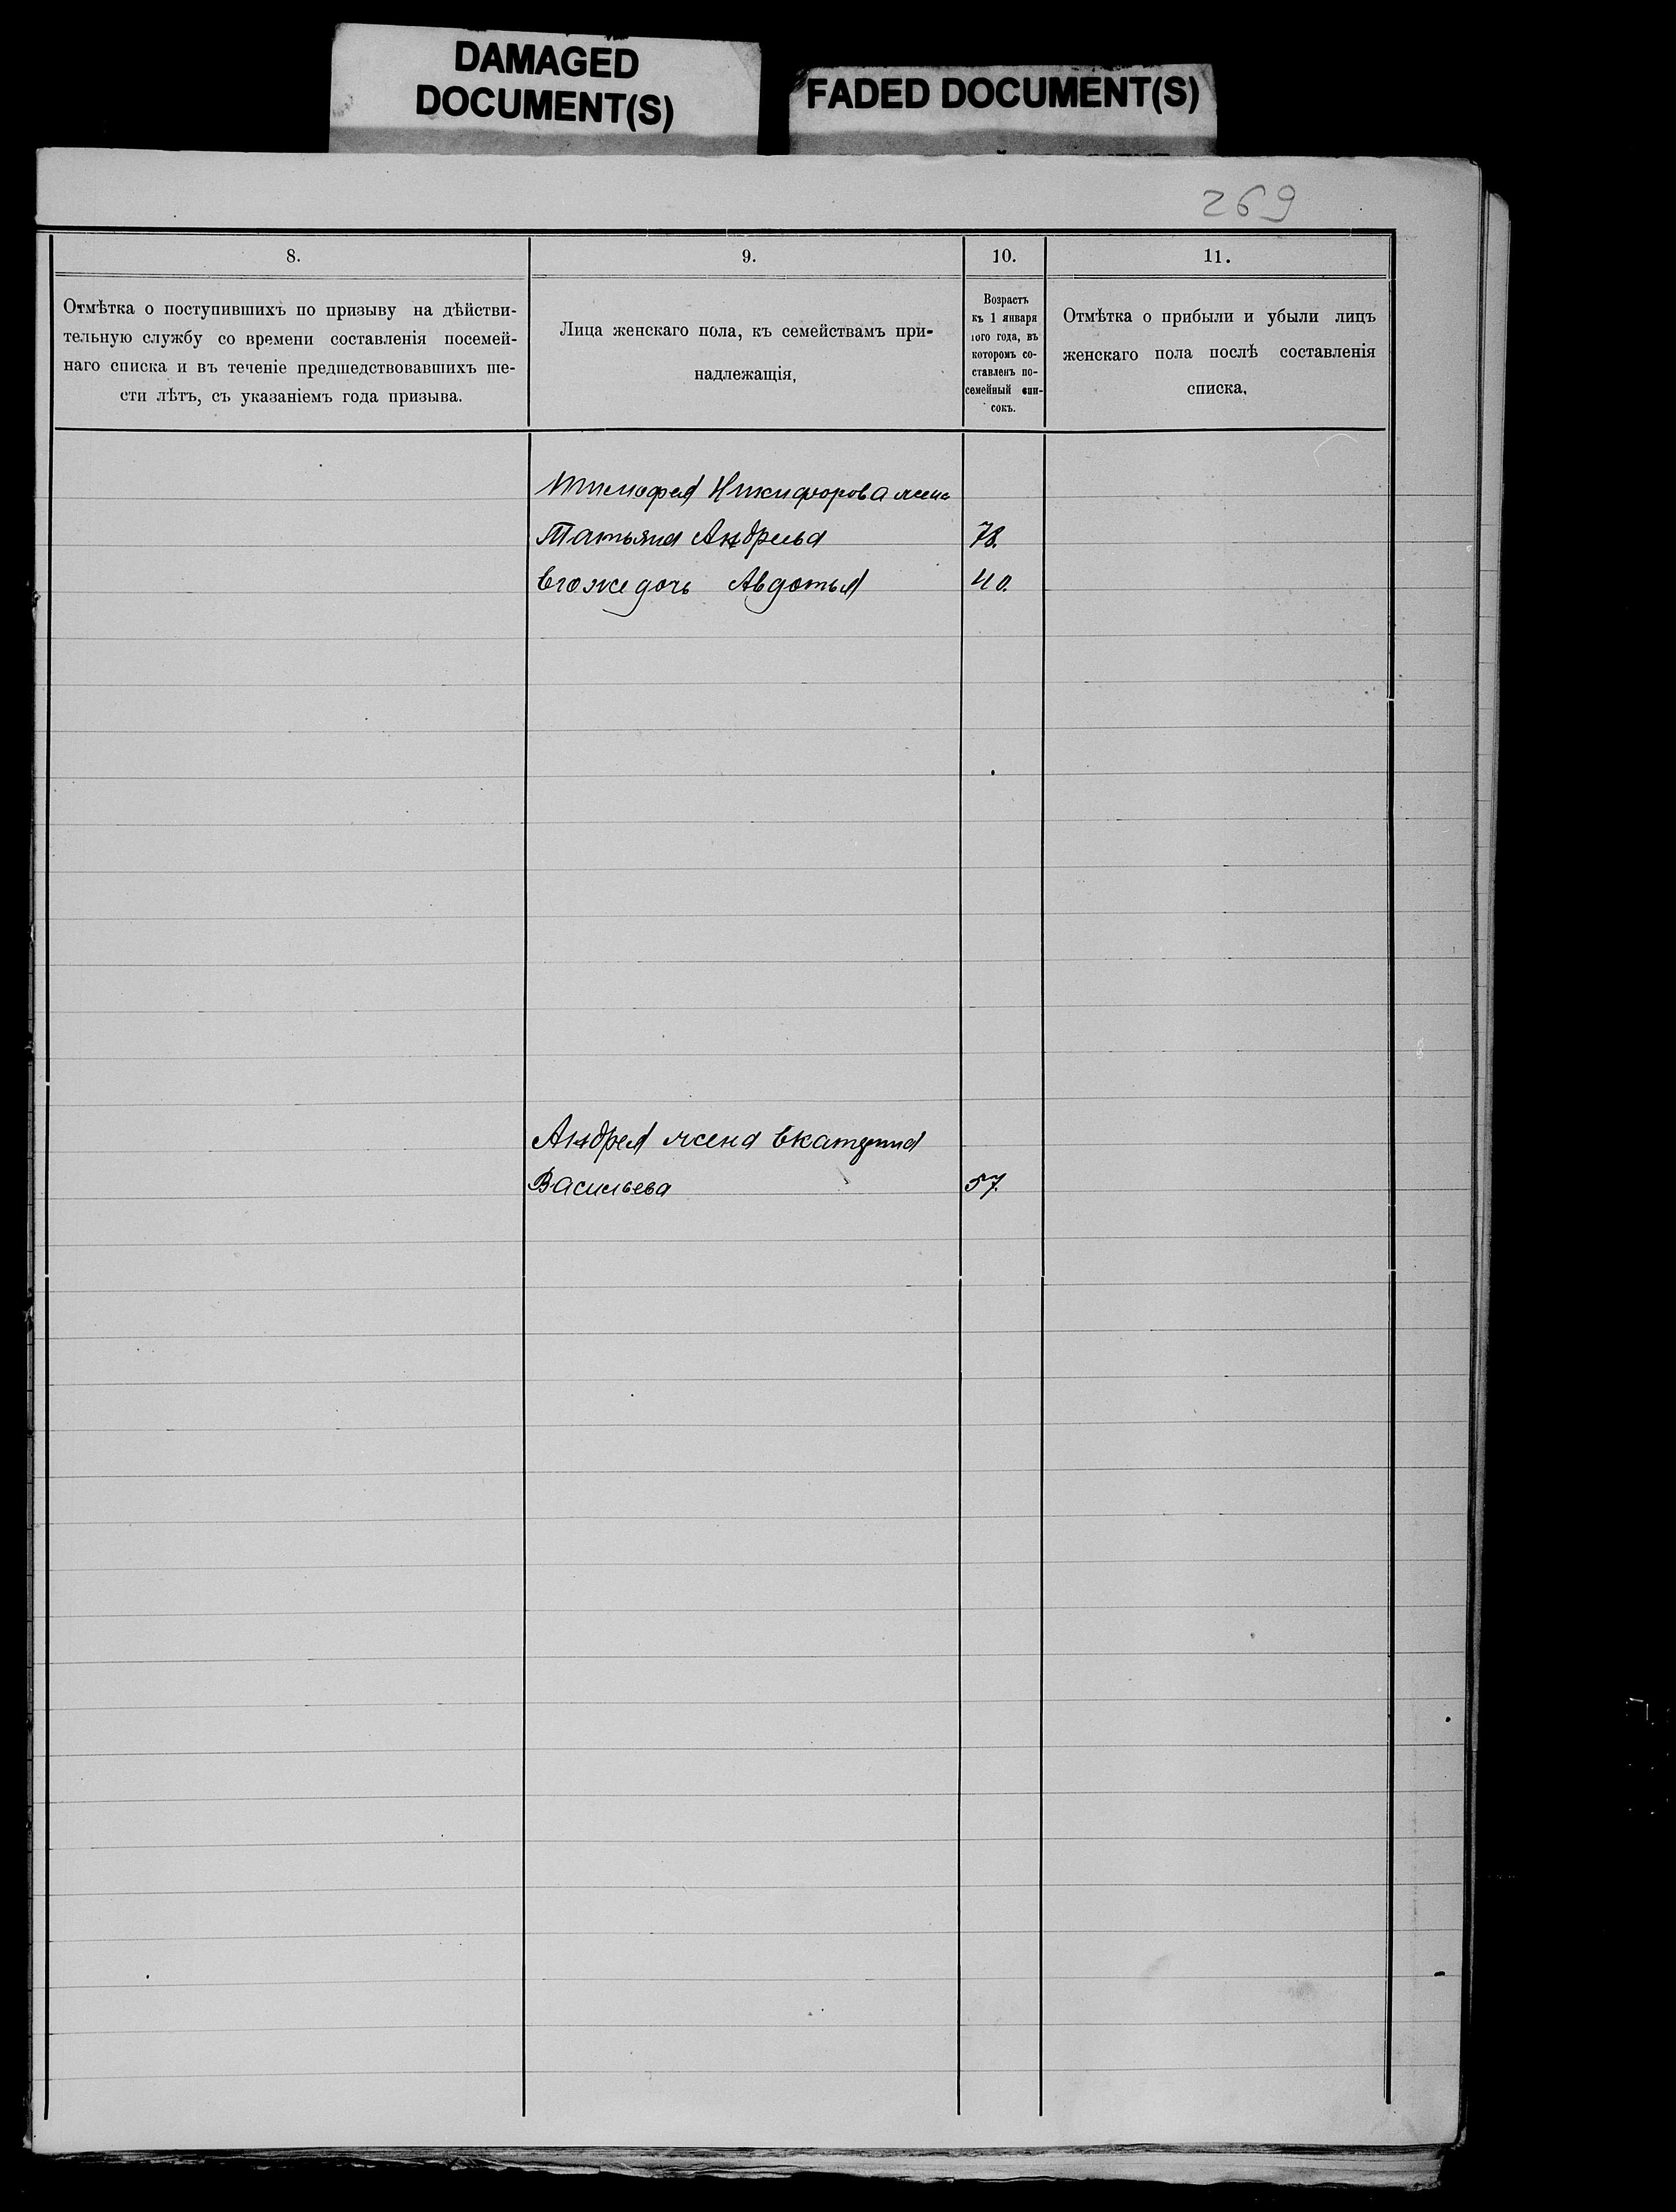 DAMAGED
DOCUMENT(S)
FADED DOCUMENT(S)
269
8.
9.
10.
11.
Отмѣтка о поступившихъ по призыву на дѣйстви-
тельную службу со времени составленія посемей-
наго списка и въ теченіе предшедствовавшихъ ше-
сти лѣтъ, съ указаніемъ года призыва.
Лица женскаго пола, къ семействамъ при-
надлежащія,
Возрастъ
къ 1 января
того года, въ
которомъ со-
ставленъ по-
семейный спи-
сокъ.
Отмѣтка о прибыли и убыли лицъ
женскаго пола послѣ составленія
списка,
Тимофея Никифорова жена
Татьяна Андреева 78.
Его же дочь Авдотья 40.
Андрея жена Екатерина
Васильева 57.